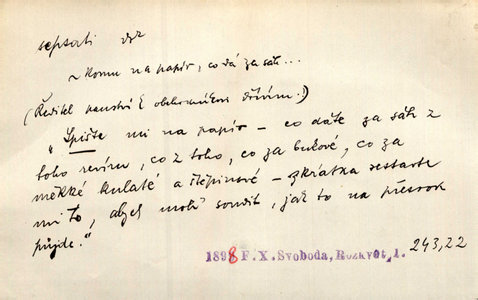 sepsati dok
~ komu na papír, co dá za sáh...
(Ředitel panství k obchodníkovi dřívím:)
"Spište mi na papír – co dáte za sáh z
toho revíru, co z toho, co za bukové, co za
měkké kulaté a štěpinové – zkrátka sestavte
mi to, abych mohl soudit, jak to na přesrok
půjde."
1898 F. X. Svoboda, Rozkvět, 1. 243,22